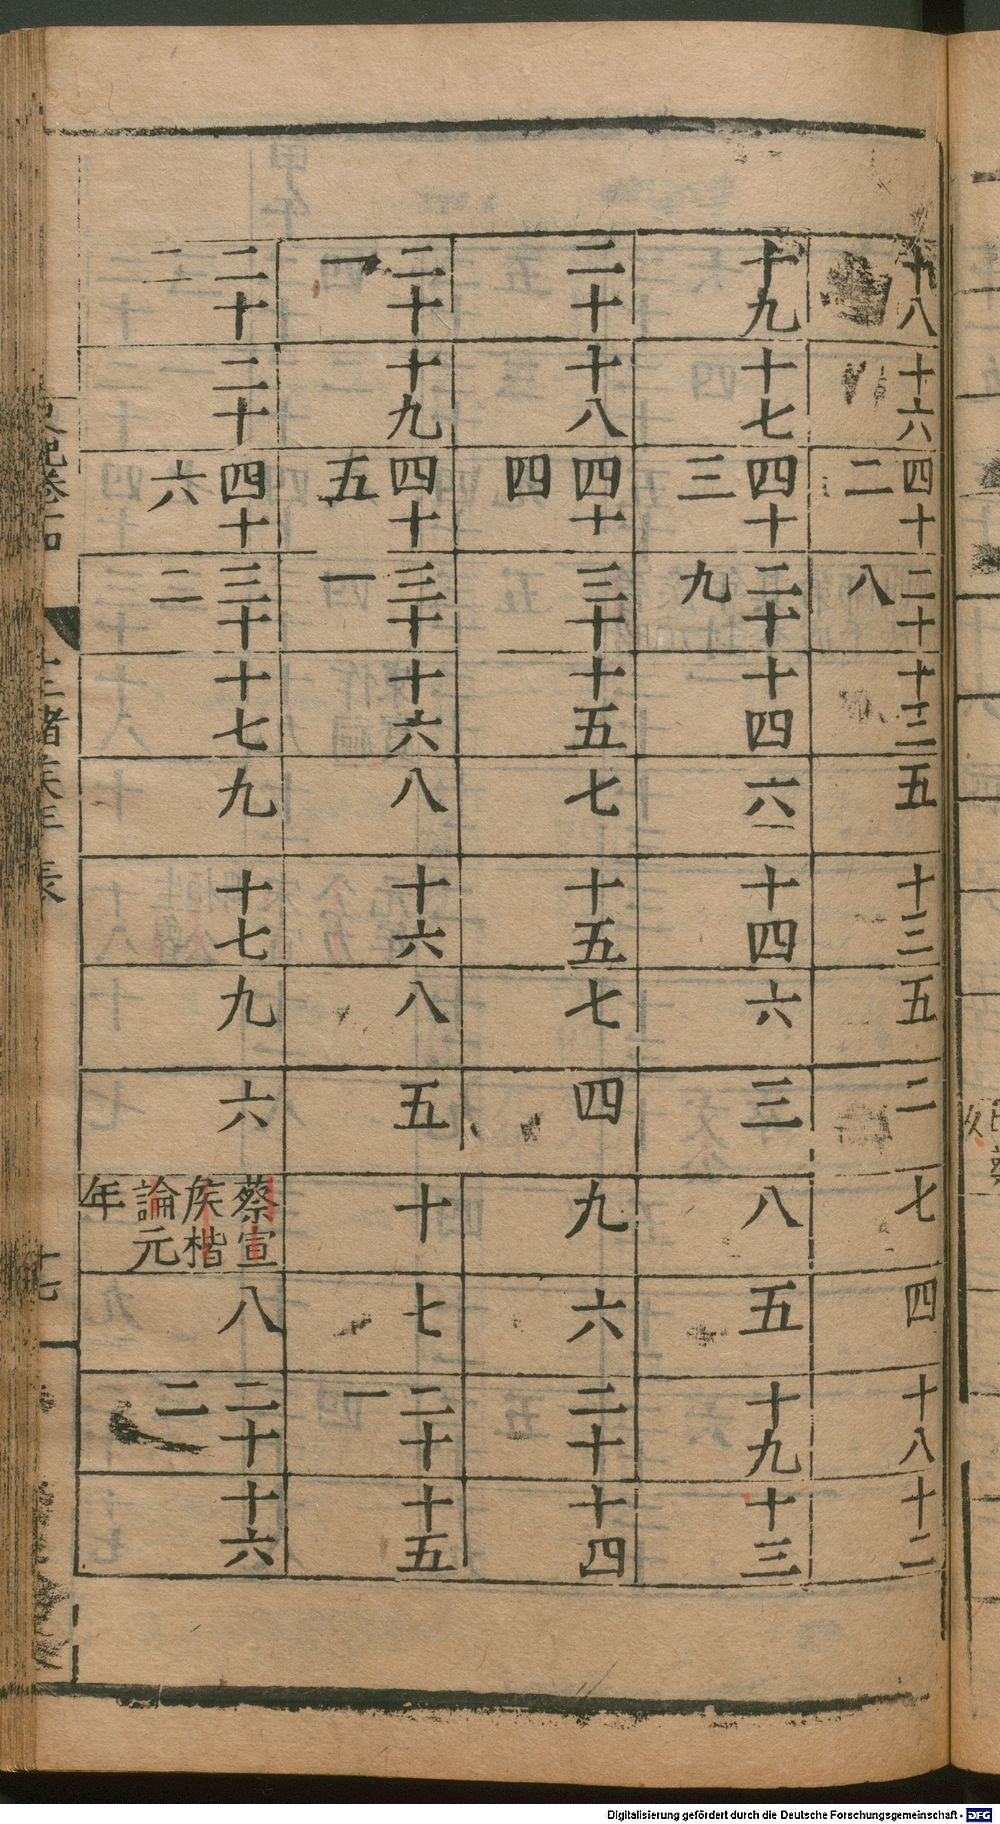 十八
十六
四十二
二十八
十三
五
十三
五
二
七
四
十八
十二
十九
十七
四十三
二十九
十四
六
十四
六
三
八
五
十九
十三
二十
十八
四十四
三十
十五
七
十五
七
四
九
六
二十
十四
二十一
十九
四十五
三十一
十六
八
十六
八
五
十
七
二十一
十五
二十二
二十
四十六
三十二
十七
九
十七
九
六
蔡宣
矦楷
論元
年
八
二十二
十六
諸矦年表
十七
Digitalisierung gefördert durch die Deutsche Forschungsgemeinschaft - DFG